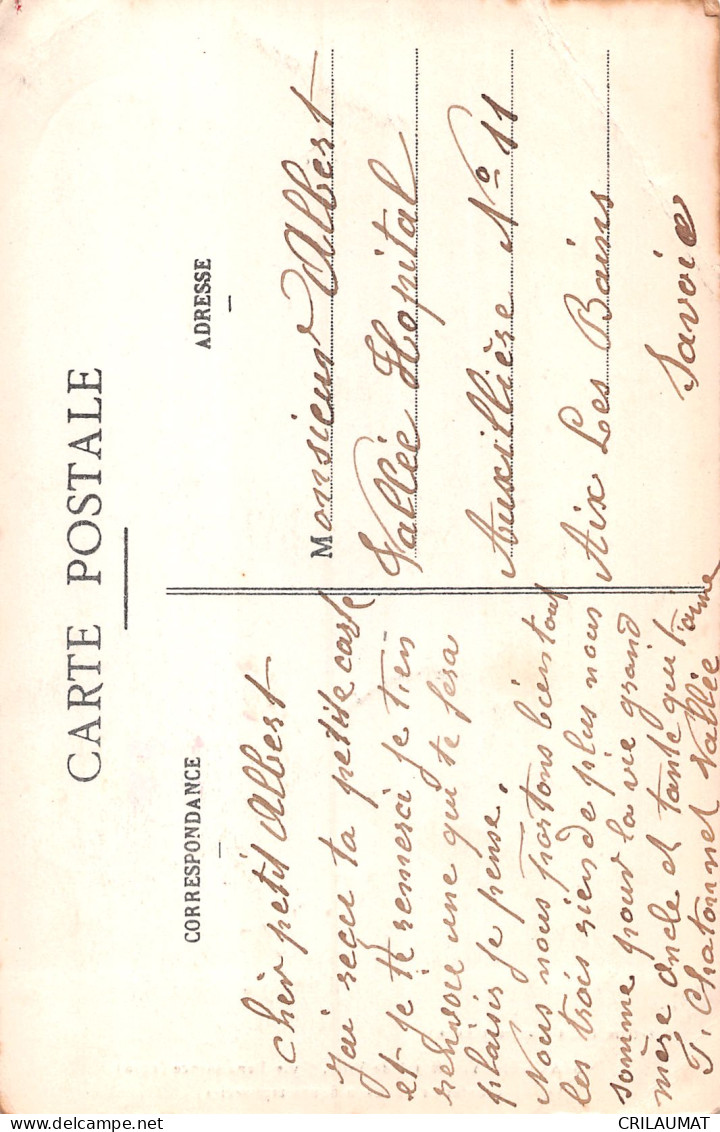 CARTE POSTALE
CORRESPONDANCE
Cher petit Albert
J'ai reçu ta petite carte
et je te remerci je tien
renvoie une qui te fera
plaisir je pense.
Nous nous portons bien tout
les trois rien de plus nous
somme pour la vie grand
mère oncle et tante qui t'aime
T. Chatonnet Vallée
ADRESSE
Monsieur Albert
Vallée Hopital
Auxillière No 11
Aix Les Bains
Savoie
CRILAUMAT